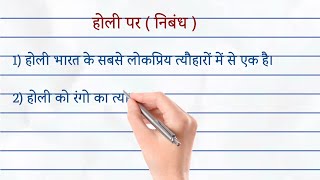 होली पर ( निबंध )
1) होली भारत के सबसे लोकप्रिय त्यौहारों में से एक है।
2) होली को रंगो का त्या